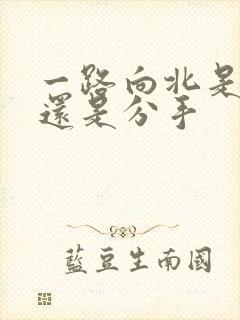 一路向北是
還是分手
藍豆生南國